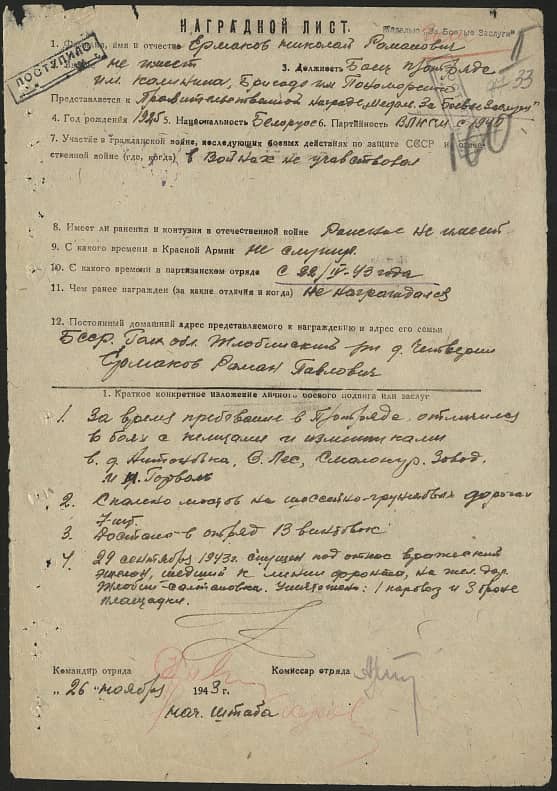 Медалью "За Боевые Заслуги"
НАГРАДНОЙ ЛИСТ.
ПОСТУПИЛО
1. Фамилия, имя и отчество Ермаков Николай Романович
не имеет 3. Должность Боец п/отряда
им. Калинина, Бригада им Пономоренко
Представляется к Правительственной награде, Медаль "За боевые заслуги"
33
4. Год рождения 1925 5. Национальность Белорус 6. Партийность ВЛКСМ с
160
7. Участие в гражданской войне, последующих боевых действиях по защите СССР и отече-
ственной войне (где, когда) в войнах не учавствовал
8. Имеет ли ранения и контузия в отечественной войне Ранения не имеет.
9. С какого времени в Красной Армии не служил
10. С какого времени в партизанском отряде с 22/IV-43 года
11. Чем ранее награжден (за какие отличия и когда) не награждался
12. Постоянный домашний адрес представляемого к награждению и адрес его семьи
БССР. Гом. обл. Жлобинский р-н д. Четверня
Ермаков Роман Павлович
1. Краткое конкретное изложение личного боевого подвига или заслуг
1. За время пребывание в П/отряде отличился
в боях с немцами и изменниками
в д. Антоновка, С. Лес, Смолокур. Завод.
и Горваль
2. Спалено мостов на шоссейно-грунтовых дорогах
7-шт.
3. Достано в отряд 13 винтовок
4. 29 сентября 1943г. спущен под откос вражеский
эшелон, шедший к линии фронта, на жел. дор.
Жлобин-Салтановка. Уничтожено: 1 паровоз и 3 броне
площадки.
Командир отряда Комиссар отряда
"26" ноября 1943 г.
нач. штаба